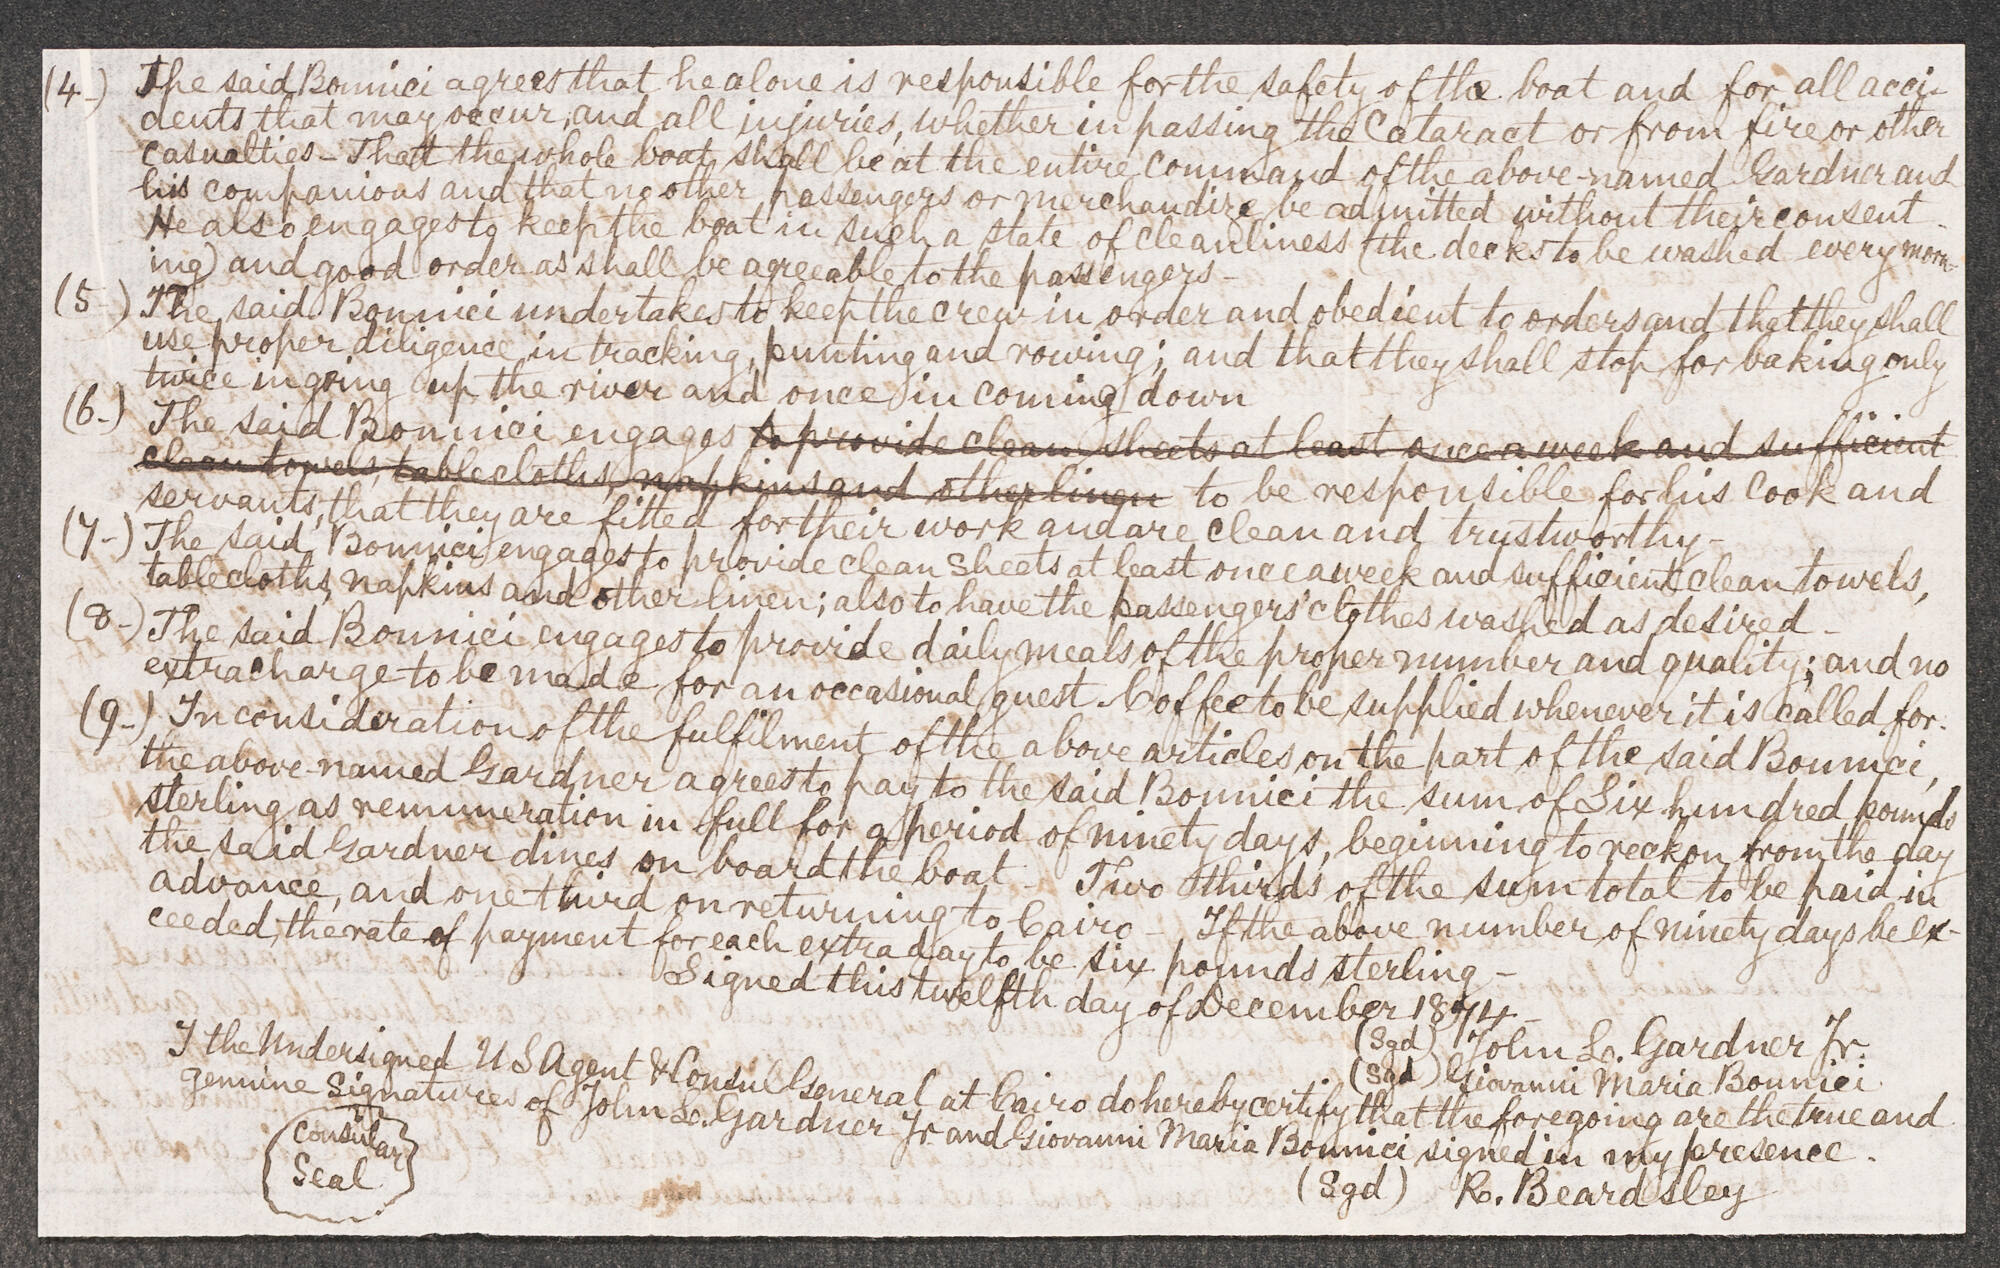 (4-) The said Bonnici agrees that he alone is responsible for the safety of the boat and for all acci-
dents that may occur, and all injuries, whether in passing the Cataract or from fire or other
casualties - That the whole boat shall be at the entire command of the above-named Gardner and
his companions and that no other passengers or merchandize be admitted without their consent -
He also engages to keep the boat in such a state of cleanliness (the decks to be washed every morn-
ing) and good order as shall be agreeable to the passengers -
(5-) The said Bonnici undertakes to keep the crew in order and obedient to orders and that they shall
use proper diligence in tracking, punting and rowing; and that they shall stop for baking only
twice in going up the river and once in coming down
(6-) The said Bonnici engages to provide clean sheets at least once a week and sufficient
clean towels, tablecloths, napkins and other linen to be responsible for his Cook and
servants, that they are fitted for their work and are clean and trustworthy -
(7-) The said Bonnici engages to provide clean sheets at least once a week and sufficient clean towels,
tablecloths, napkins and other linen; also to have the passengers' clothes washed as desired -
(8-) The said Bonnici engages to provide daily meals of the proper number and quality; and no
extra charge to be made for an occasional guest. Coffee to be supplied whenever it is called for.
(9-) In consideration of the fulfilment of the above articles on the part of the said Bonnici,
the above-named Gardner agrees to pay to the said Bonnici the sum of Six hundred pounds
sterling as remuneration in full for a period of ninety days, beginning to reckon from the day
the said Gardner dines on board the boat - Two thirds of the sum total to be paid in
advance, and one third on returning to Cairo - If the above number of ninety days be ex-
ceeded, the rate of payment for each extra day to be six pounds sterling -
Signed this twelfth day of December 1874 -
(Sgd) John L. Gardner Jr.
(Sgd) Giovanni Maria Bonnici
I the Undersigned U S Agent & Consul General at Cairo do hereby certify that the foregoing are the true and
genuine signatures of John L. Gardner Jr and Giovanni Maria Bonnici signed in my presence.
(Sgd) R. Beardsley
Consular
Seal